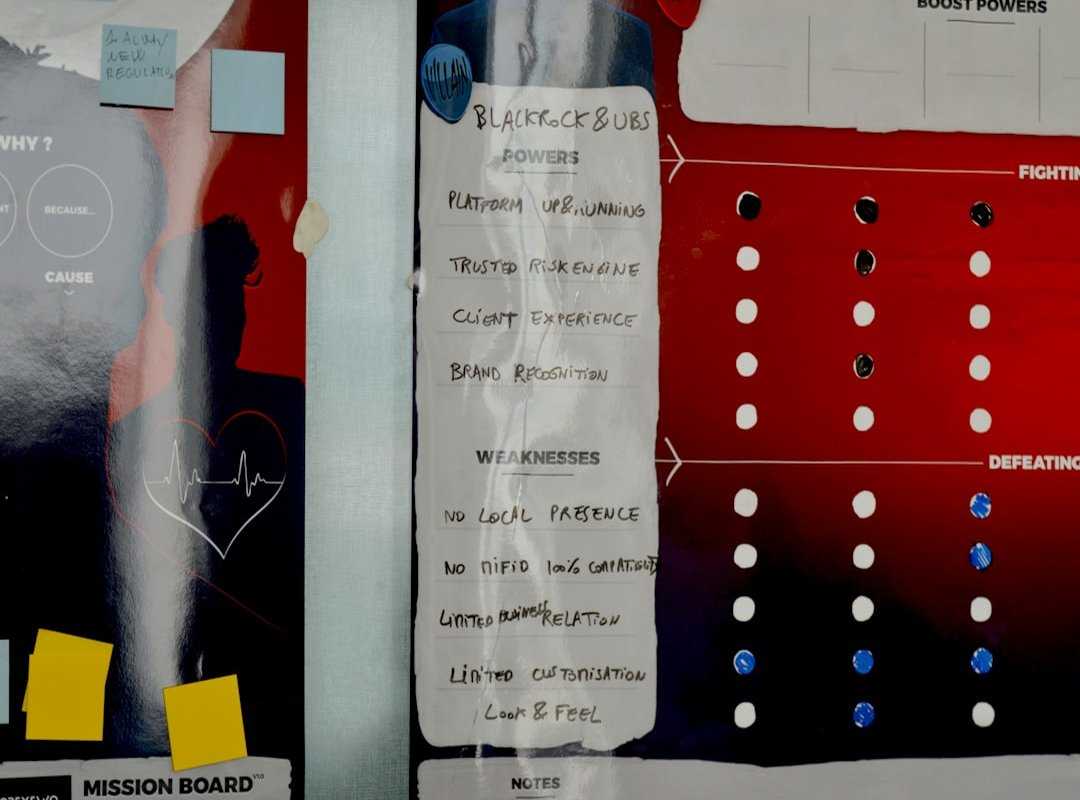 NEW
WHY ?
BECAUSE...
CAUSE
MISSION BOARD V1.0
VILLAIN
BLACKROCK & UBS
POWERS
PLATFORM UP & RUNNING
TRUSTED RISK ENGINE
CLIENT EXPERIENCE
BRAND RECOGNITION
WEAKNESSES
NO LOCAL PRESENCE
NO MIFID 100% COMPATIBILITY
LIMITED BUSINESS RELATION
LIMITED CUSTOMISATION
LOOK & FEEL
NOTES
BOOST POWERS
FIGHTIN
DEFEATING